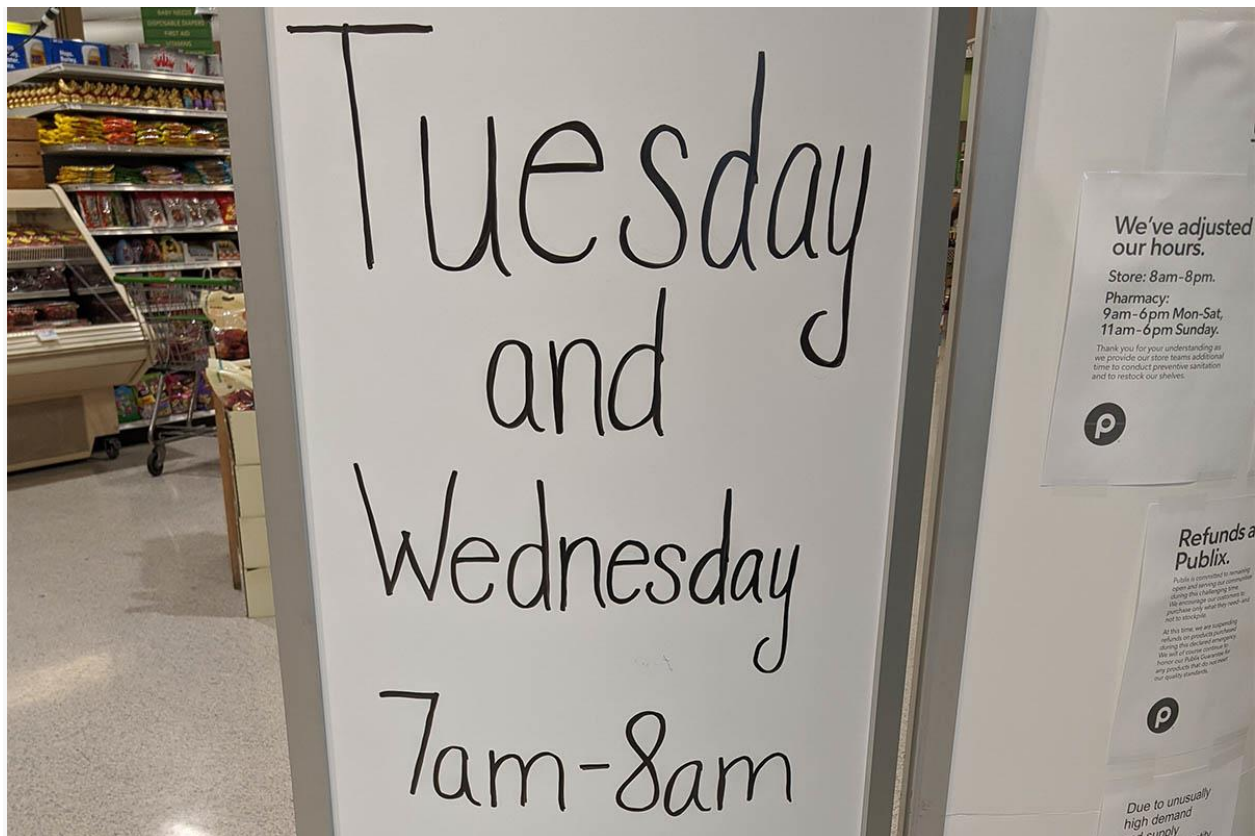 BABY NEEDS
DISPOSABLE DIAPERS
FIRST AID
VITAMINS
Tuesday
and
Wednesday
7am-8am
We've adjusted
our hours.
Store: 8am-8pm.
Pharmacy:
9am-6pm Mon-Sat,
11am-6pm Sunday.
Thank you for your understanding as
we provide our store teams additional
time to conduct preventive sanitation
and to restock our shelves.
P
Refunds a
Publix.
Publix is committed to remaining
open and serving our communities
during this challenging time.
We encourage our customers to
purchase only what they need–and
not to stockpile.
At this time, we are suspending
refunds on products purchased
during this declared emergency.
We will of course continue to
honor our Publix Guarantee for
any products that do not meet
our quality standards.
P
Due to unusually
high demand
d supply